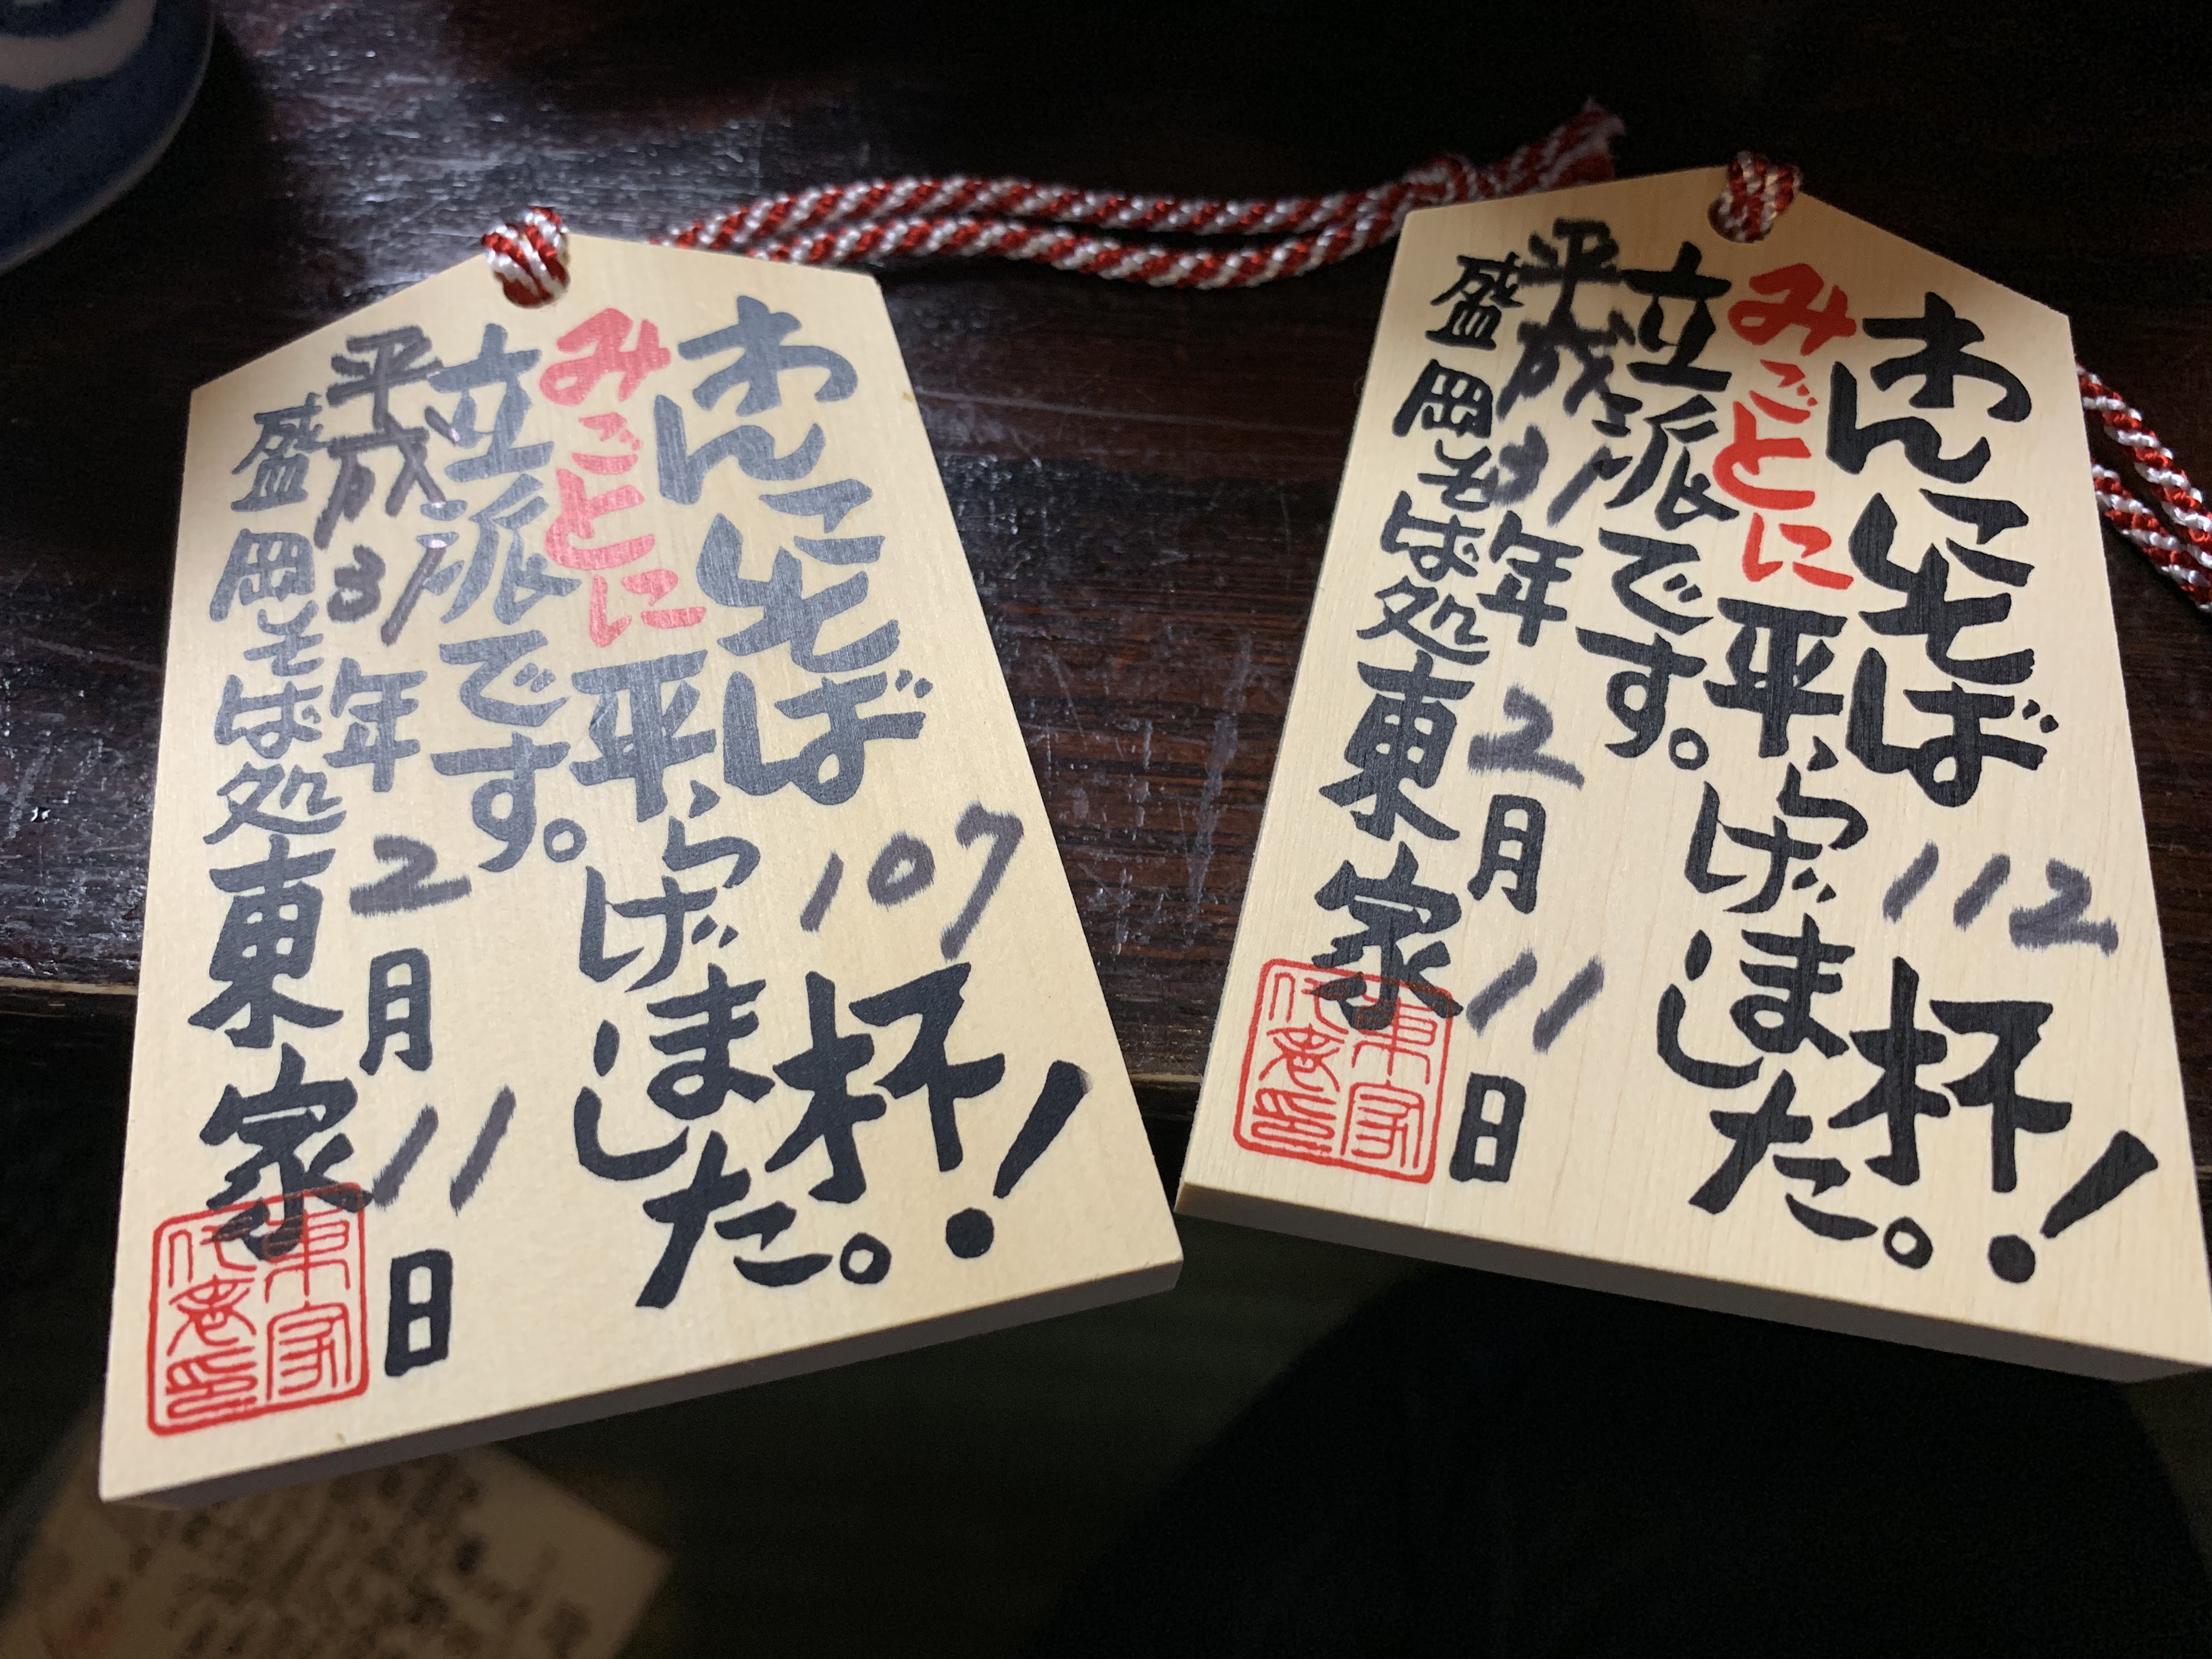 わんこそば 107 杯!
みごとに平らげました。
立派です。
平成31年2月11日
盛岡そば処 東家
東家
代表印
わんこそば 112 杯!
みごとに平らげました。
立派です。
平成31年2月11日
盛岡そば処 東家
東家
代表印